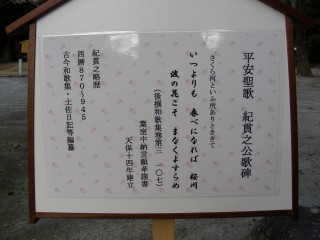 平安聖歌 紀貫之公歌碑
さくら河といふ所ありときゝて
いつよりも 春べになれば 桜川
波の花こそ まなくよすらめ
(後撰和歌集巻第三 一〇七)
葉室中納言顕孝謹書
天保十四年建立
紀貫之略歴
西暦870～945
古今和歌集・土佐日記等編纂